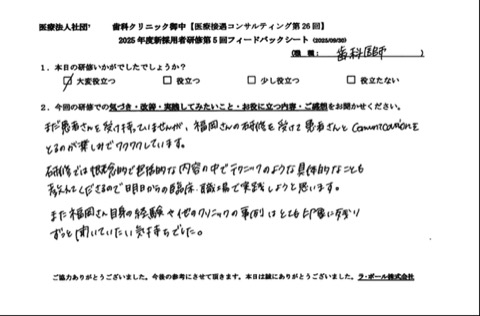 医療法人社団 歯科クリニック御中【医療接遇コンサルティング第26回】
2025年度新採用者研修第5回フィードバックシート(2025/09/30)
(職 種: 歯科医師 )
1.本日の研修いかがでしたでしょうか?
□大変役立つ □役立つ □少し役立つ □役立たない
2.今回の研修での気づき・改善・実践してみたいこと・お役に立つ内容・ご感想をお聞かせください。
まだ患者さんを受け持っていませんが、福岡さんの研修を受けて患者さんとCommunicationを
とるのが楽しみでワクワクしています。
研修では概念的で全体的な内容の中でテクニックのような具体的なことも
教えてくださるので明日からの臨床、職場で実践しようと思います。
また福岡さん自身の経験や他のクリニックの事例はとても印象に残り
ずっと聞いていたい気持ちでした。
ご協力ありがとうございました。今後の参考にさせて頂きます。本日は誠にありがとうございました。ラ・ポール株式会社